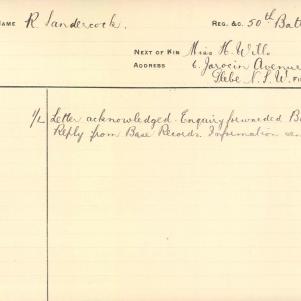 NAME R. Sandercock. REG. &C. 50th Batt
NEXT OF KIN Miss H. Wills
ADDRESS 6. Jarocin Avenue
Glebe N.S.W.
1/2 Letter acknowledged. Enquiry forwarded Ba
Reply from Base Records. Information sen